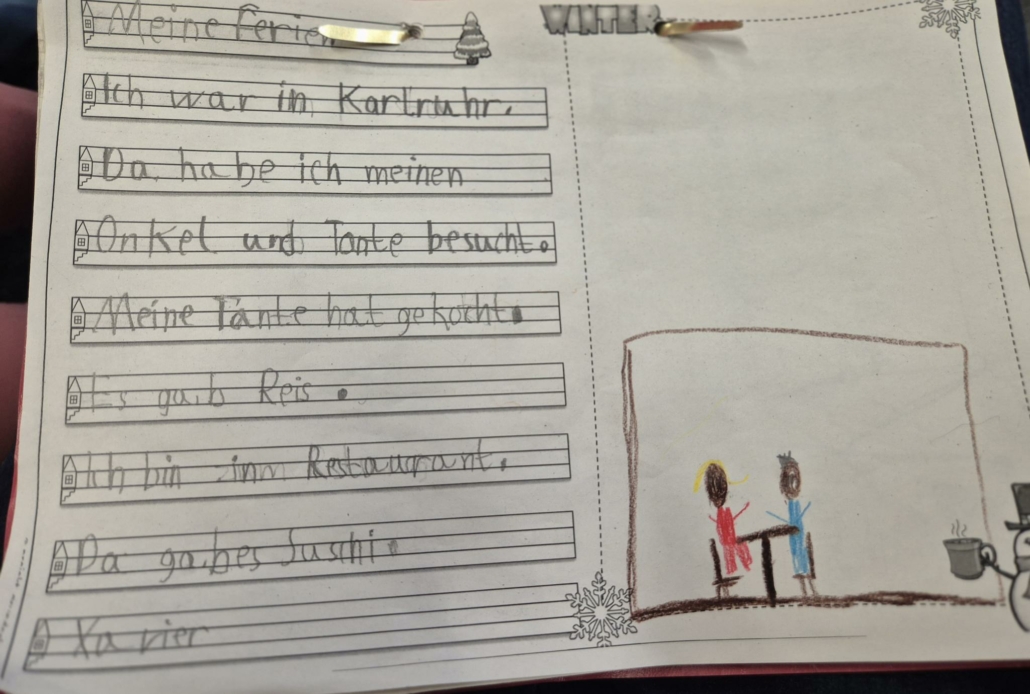 Meine Ferien
WINTER
Ich war in Karlruhr.
Da habe ich meinen
Onkel und Tante besucht.
Meine Tante hat gekocht.
Es gab Reis.
Ich bin inm Restaurant.
Da gabes Suschi.
Xavier